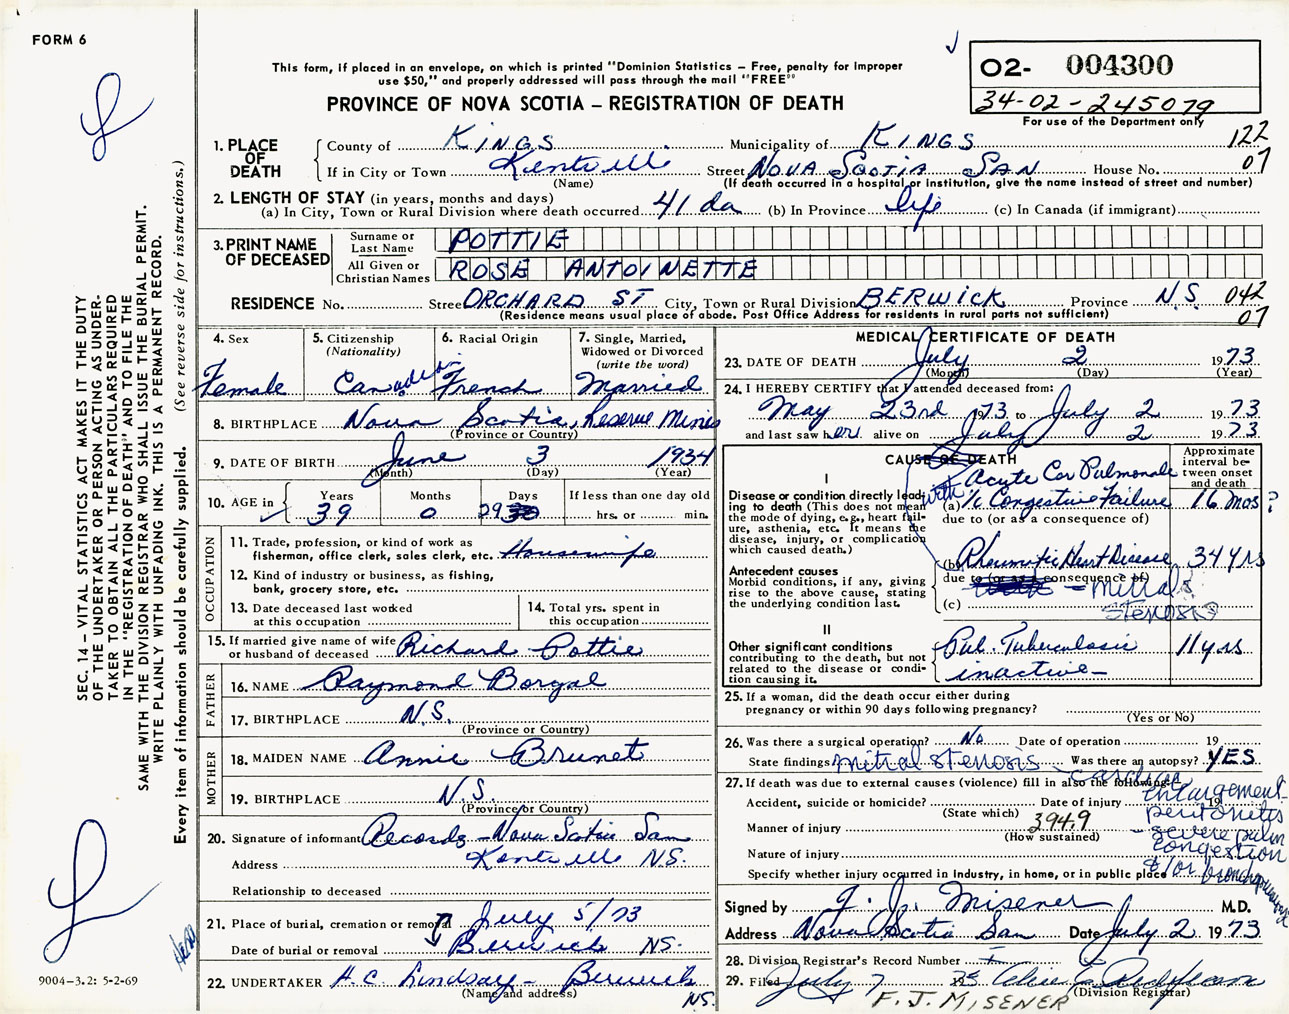 FORM 6
This form, if placed in an envelope, on which is printed "Dominion Statistics – Free, penalty for improper
use $50," and properly addressed will pass through the mail "FREE"
PROVINCE OF NOVA SCOTIA – REGISTRATION OF DEATH
02- 004300
34-02-245079
For use of the Department only
1. PLACE OF DEATH
County of KINGS Municipality of KINGS 122
If in City or Town Kentville Street NOVA SCOTIA SAN House No. 07
(Name) (If death occurred in a hospital or institution, give the name instead of street and number)
2. LENGTH OF STAY (in years, months and days)
(a) In City, Town or Rural Division where death occurred 41 da (b) In Province life (c) In Canada (if immigrant)
3. PRINT NAME OF DECEASED
Surname or Last Name POTTIE
All Given or Christian Names ROSE ANTOINETTE
RESIDENCE No. Street ORCHARD ST City, Town or Rural Division BERWICK Province N.S. 042
(Residence means usual place of abode. Post Office Address for residents in rural parts not sufficient) 07
4. Sex Female
5. Citizenship (Nationality) Canadian
6. Racial Origin French
7. Single, Married, Widowed or Divorced (write the word) Married
8. BIRTHPLACE Nova Scotia, Reserve Mines
(Province or Country)
9. DATE OF BIRTH June 3 1934
(Month) (Day) (Year)
10. AGE in Years 39 Months 0 Days 29 If less than one day old hrs. or min.
OCCUPATION
11. Trade, profession, or kind of work as fisherman, office clerk, sales clerk, etc. Housewife
12. Kind of industry or business, as fishing, bank, grocery store, etc.
13. Date deceased last worked at this occupation
14. Total yrs. spent in this occupation
15. If married give name of wife or husband of deceased Richard Pottie
FATHER
16. NAME Raymond Borgal
17. BIRTHPLACE N.S.
(Province or Country)
MOTHER
18. MAIDEN NAME Annie Brunet
19. BIRTHPLACE N.S.
(Province or Country)
20. Signature of informant Records - Nova Scotia San
Address Kentville N.S.
Relationship to deceased
21. Place of burial, cremation or removal July 5/73
Date of burial or removal Berwick NS.
22. UNDERTAKER H.C. Lindsay - Berwick
(Name and address) NS.
MEDICAL CERTIFICATE OF DEATH
23. DATE OF DEATH July 2 1973
(Month) (Day) (Year)
24. I HEREBY CERTIFY that I attended deceased from:
May 23rd 1973 to July 2 1973
and last saw her alive on July 2 1973
CAUSE OF DEATH
Approximate interval between onset and death
I
Disease or condition directly leading to death (This does not mean
the mode of dying, e.g., heart failure, asthenia, etc. It means the
disease, injury, or complication which caused death.)
Acute Cor Pulmonale
with (a) Congestive Failure 16 mos?
due to (or as a consequence of)
Antecedent causes
Morbid conditions, if any, giving rise to the above cause, stating the underlying condition last.
(b) Rheumatic Heart Disease 34 yrs
due to (or as a consequence of)
(c) - mitral stenosis
II
Other significant conditions
contributing to the death, but not related to the disease or condition causing it.
Pul. Tuberculosis 11 yrs
inactive -
25. If a woman, did the death occur either during pregnancy or within 90 days following pregnancy?
(Yes or No)
26. Was there a surgical operation? No Date of operation 19
State findings mitral stenosis Was there an autopsy? YES
cardiac enlargement peritonitis - severe pulm congestion &/or bronchopneumonia
27. If death was due to external causes (violence) fill in also the following:
Accident, suicide or homicide? Date of injury 19
(State which)
Manner of injury 394.9
(How sustained)
Nature of injury
Specify whether injury occurred in industry, in home, or in public place
Signed by F. J. Misener M.D.
Address Nova Scotia San Date July 2 1973
28. Division Registrar's Record Number
29. Filed July 7
(Division Registrar)
F. J. MISENER
SEC. 14 – VITAL STATISTICS ACT MAKES IT THE DUTY
OF THE UNDERTAKER OR PERSON ACTING AS UNDER-
TAKER TO OBTAIN ALL THE PARTICULARS REQUIRED
IN THE "REGISTRATION OF DEATH" AND TO FILE THE
SAME WITH THE DIVISION REGISTRAR WHO SHALL ISSUE THE BURIAL PERMIT.
WRITE PLAINLY WITH UNFADING INK. THIS IS A PERMANENT RECORD.
Every item of information should be carefully supplied. (See reverse side for instructions.)
9004-3.2: 5-2-69